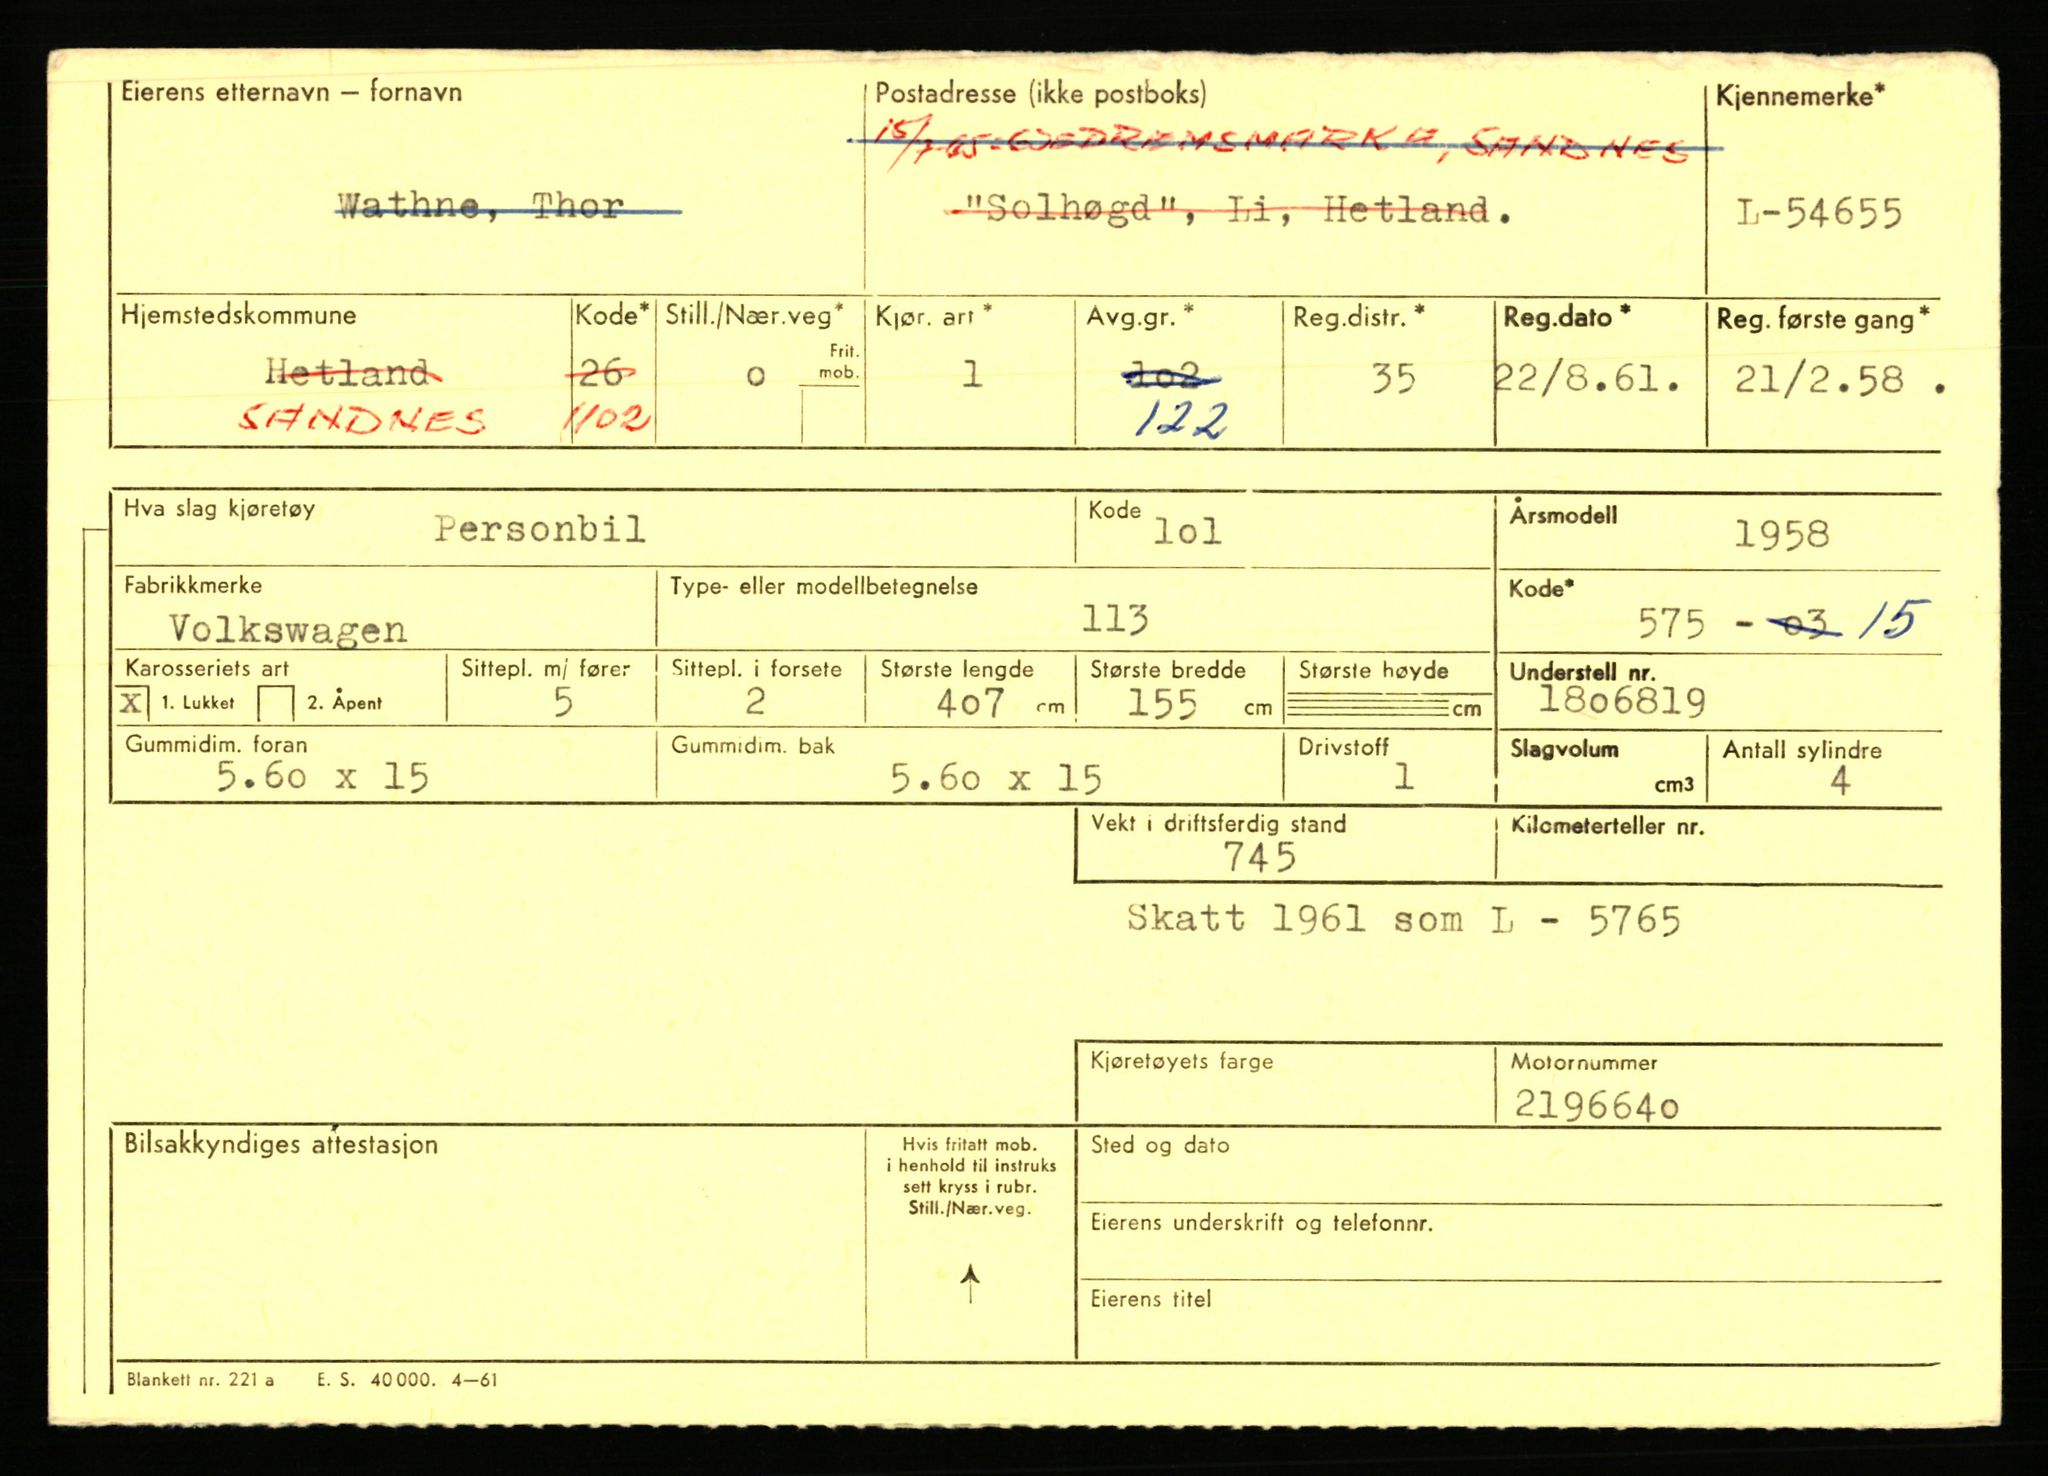 Eierens etternavn – fornavn
Postadresse (ikke postboks)
Kjennemerke*
15/7-65. GJEDREMSMARKA, SANDNES
Wathne, Thor
"Solhøgd", Li, Hetland.
L-54655
Hjemstedskommune
Kode*
Still./Nær.veg*
Kjør. art *
Avg.gr. *
Reg.distr. *
Reg.dato *
Reg. første gang*
Frit. mob.
Hetland
26
o
1
1o2
35
22/8.61.
21/2.58 .
SANDNES
1102
122
Hva slag kjøretøy
Personbil
Kode
1o1
Årsmodell
1958
Fabrikkmerke
Volkswagen
Type- eller modellbetegnelse
113
Kode*
575 - o3 15
Karosseriets art
X 1. Lukket 2. Åpent
Sittepl. m/ fører
5
Sittepl. i forsete
2
Største lengde
4o7 cm
Største bredde
155 cm
Største høyde
cm
Understell nr.
18o6819
Gummidim. foran
5.6o x 15
Gummidim. bak
5.6o x 15
Drivstoff
1
Slagvolum
cm3
Antall sylindre
4
Vekt i driftsferdig stand
745
Kilometerteller nr.
Skatt 1961 som L - 5765
Kjøretøyets farge
Motornummer
219664o
Bilsakkyndiges attestasjon
Hvis fritatt mob.
i henhold til instruks
sett kryss i rubr.
Still./Nær.veg.
Sted og dato
Eierens underskrift og telefonnr.
Eierens titel
Blankett nr. 221 a E. S. 40 000. 4–61